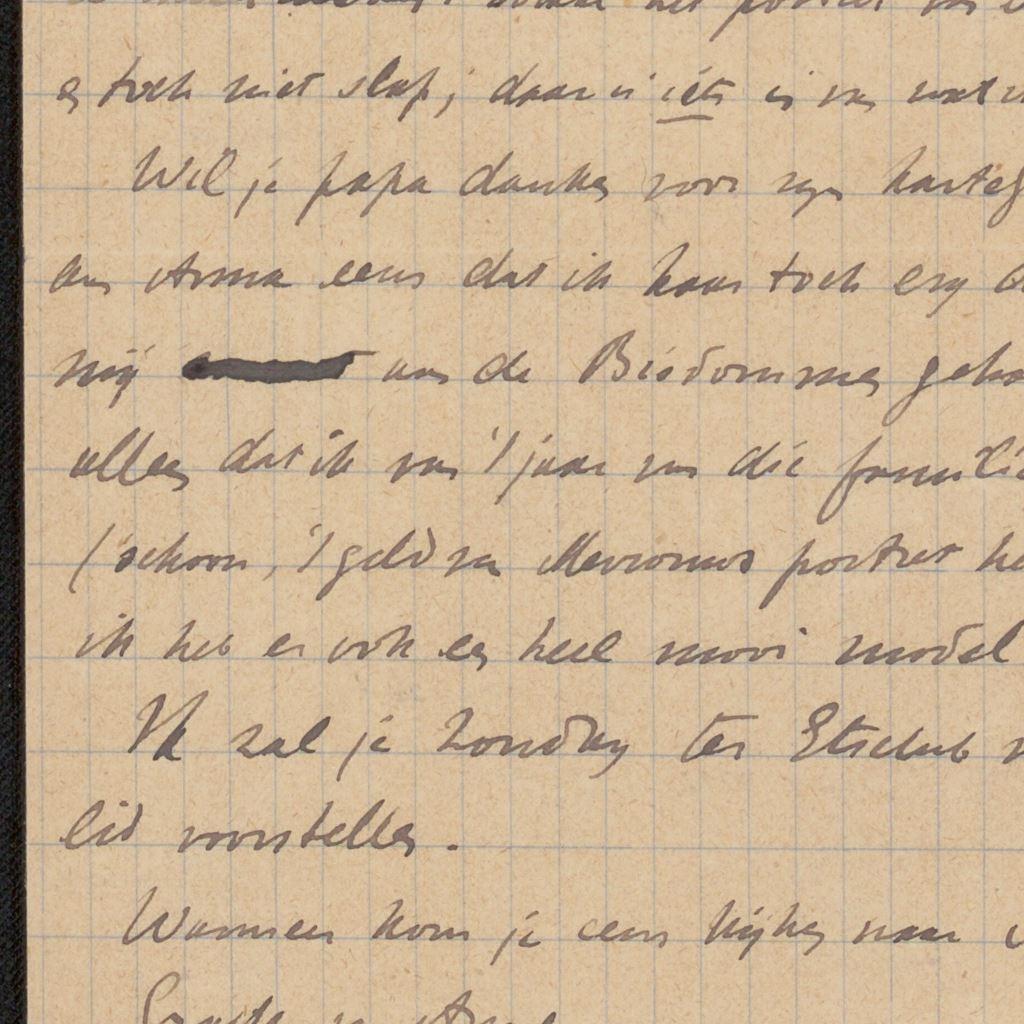 het portret van
en toch niet slap; daar is iets in van wat
Wil je papa danken voor zijn harteg
aan Anna eens dat ik haar toch erg
mij aan de Bisdommes geho
alles dat ik van 't jaar van die familie
('schoon, 't geld van portret he
ik heb er ook een heel mooi model
Ik zal je Zondag ter Etsclub
lid voorstellen.
Wanneer kom je eens kijken naar